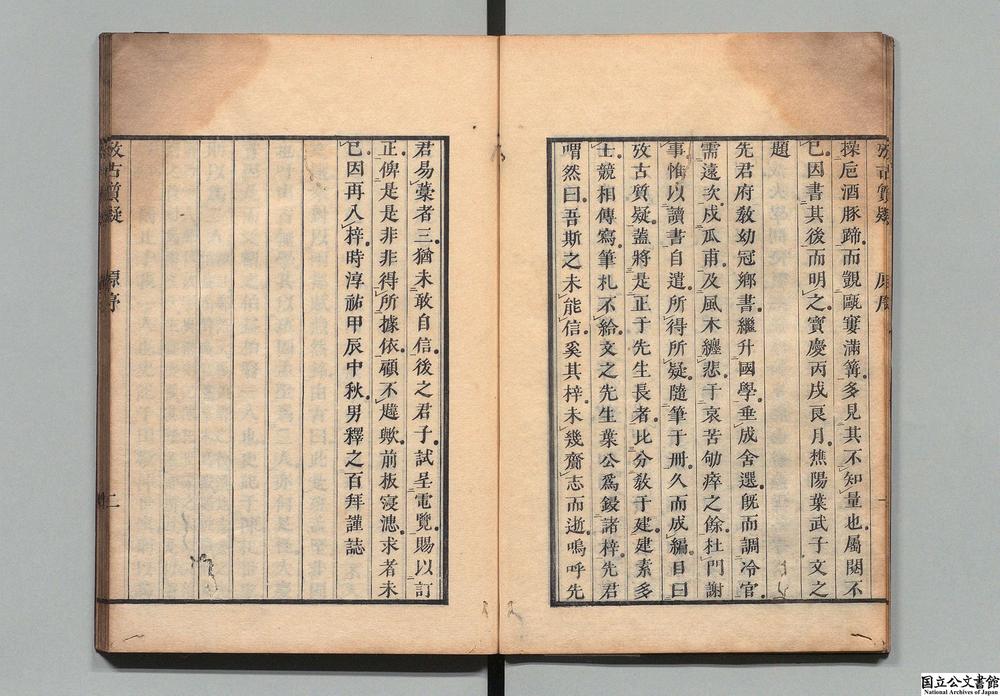 攷古質疑 原序 一
操巵酒豚蹄而覬甌窶滿篝多見其不知量也屬閱不
已因書其後而明之寶慶丙戌良月樵陽葉武子文之
題
先君府教幼冠鄉書繼升國學垂成舍選旣而調冷官
需遠次戍瓜甫及風木纏悲于哀苦劬瘁之餘杜門謝
事惟以讀書自遣所得所疑隨筆于冊久而成編目曰
攷古質疑蓋將是正于先生長者比分教于建建素多
士競相傳寫筆札不給文之先生葉公爲鋟諸梓先君
喟然曰吾斯之未能信奚其梓未幾齎志而逝嗚呼先
君易藁者三猶未敢自信後之君子試呈電覽賜以訂
正俾是是非非得所據依顧不韙歟前板寖漶求者未
已因再入梓時淳祐甲辰中秋男釋之百拜謹誌
攷古質疑 原序 二
国立公文書館
National Archives of Japan